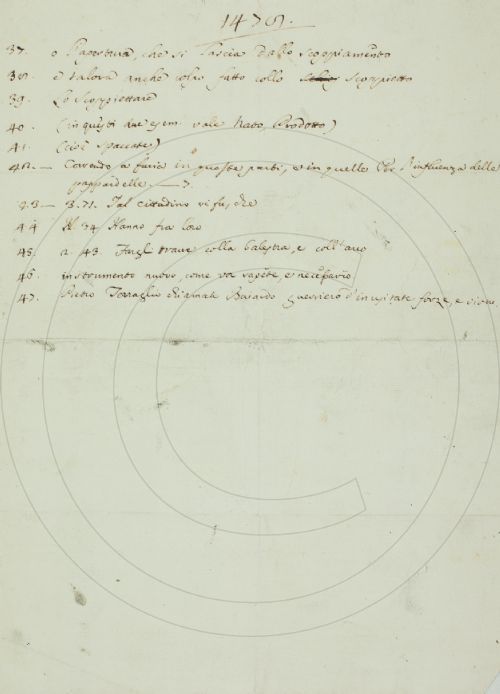 1478.
37. o l'apertura, che si lascia dallo scoppiamento
38. e talora anche colpo fatto collo scoppietto
39. Lo Scoppiettare
40. (in questi due esem. vale Nato, Prodotto)
41. (cioè spaccate)
42.— Correndo a furia in queste parti, e in quelle per l'influenza delle
pappardelle.— 7.
43— 3.71. Tal cittadino vi fu, che
44 34 Hanno fra loro
45. 2. 43. trave colla balestra, e coll'arco
46. instrumento nuovo, come voi sapete, e necessario
47. Pietro chiamate guerriero d'inusitate forze, e